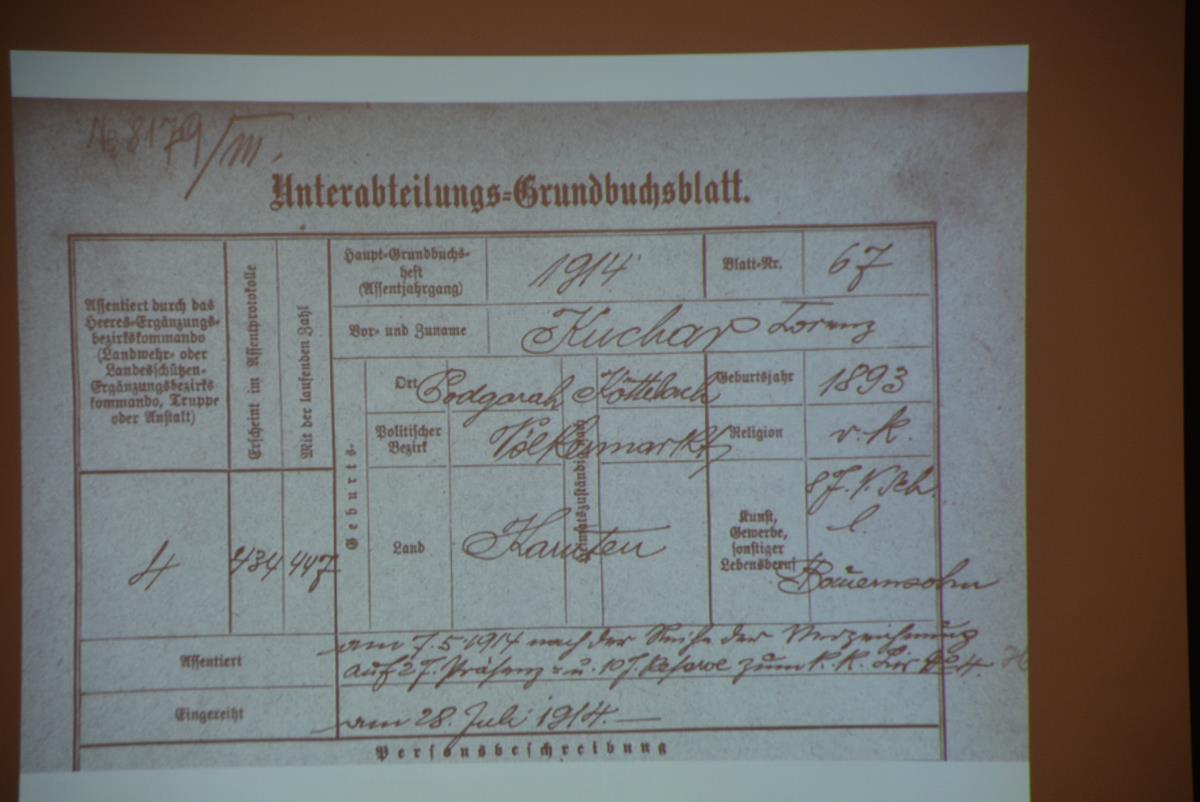 № 8179/III.
Unterabteilungs-Grundbuchsblatt.
Assentiert durch das
Heeres-Ergänzungs-
bezirkskommando
(Landwehr- oder
Landesschützen-
Ergänzungsbezirks
kommando, Truppe
oder Anstalt)
Erscheint im Assentprotokolle
Mit der laufenden Zahl
Haupt-Grundbuchs-
heft
(Assentjahrgang)
1914
Blatt-Nr.
67
Vor- und Zuname
Kuchar Lorenz
Geburts-
Ort
Podgorah Köttelach
Geburtsjahr
1893
Politischer
Bezirk
Völkermarkt
Religion
r. k.
Land
Kärnten
Heimatszuständigkeit
Kunst,
Gewerbe,
sonstiger
Lebensberuf
8 J. V. Sch.
l.
Bauernsohn
4
434
447
Assentiert
am 7.5 1914 nach der Reihe der Verzeichnung
auf 2 J. Präsenz- u. 10 J. Reserve zum k. k.
Eingereiht
am 28. Juli 1914.—
Personsbeschreibung